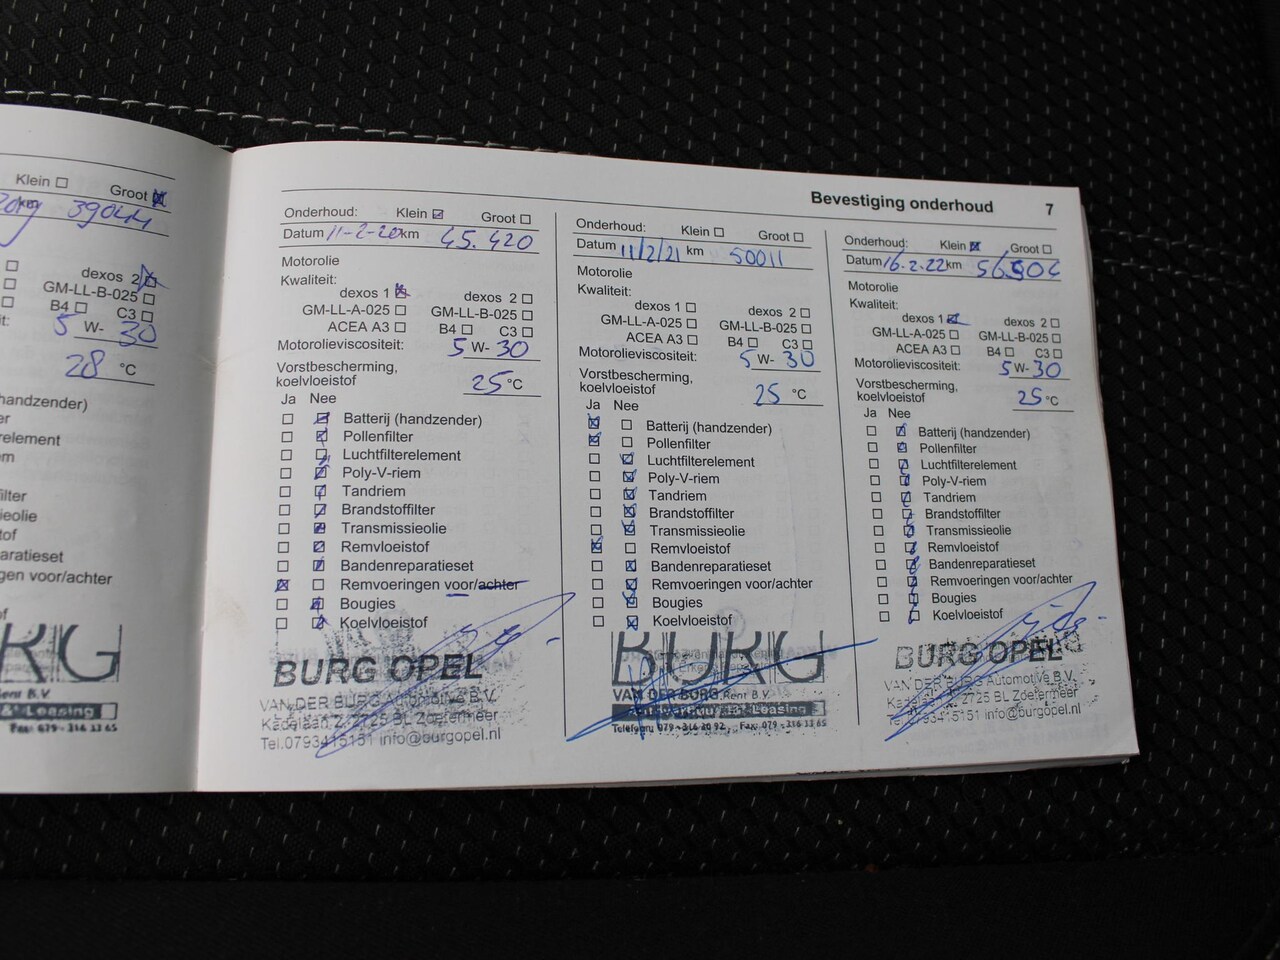 Klein Groot
km 39044
dexos 2
GM-LL-B-025
B4 C3
5 W- 30
28 °C
handzender)
relement
ilter
ieolie
tof
aratieset
gen voor/achter
BURG
Rent B.V.
& Leasing
Fax: 079 - 316 33 65
Bevestiging onderhoud 7
Onderhoud: Klein Groot
Datum 11-2-20 km 45.420
Motorolie
Kwaliteit:
dexos 1 dexos 2
GM-LL-A-025 GM-LL-B-025
ACEA A3 B4 C3
Motorolieviscositeit: 5 W- 30
Vorstbescherming,
koelvloeistof 25 °C
Ja Nee
Batterij (handzender)
Pollenfilter
Luchtfilterelement
Poly-V-riem
Tandriem
Brandstoffilter
Transmissieolie
Remvloeistof
Bandenreparatieset
Remvoeringen voor/achter
Bougies
Koelvloeistof
BURG OPEL
VAN DER BURG Automotive B.V.
Kadelaan 2, 2725 BL Zoetermeer
Tel.0793415151 info@burgopel.nl
Onderhoud: Klein Groot
Datum 11/2/21 km 50011
Motorolie
Kwaliteit:
dexos 1 dexos 2
GM-LL-A-025 GM-LL-B-025
ACEA A3 B4 C3
Motorolieviscositeit: 5 W- 30
Vorstbescherming,
koelvloeistof 25 °C
Ja Nee
Batterij (handzender)
Pollenfilter
Luchtfilterelement
Poly-V-riem
Tandriem
Brandstoffilter
Transmissieolie
Remvloeistof
Bandenreparatieset
Remvoeringen voor/achter
Bougies
Koelvloeistof
BURG
VAN DER BURG Rent B.V.
Autoverhuur & Leasing
Telefoon: 079 - 316 20 92 Fax: 079 - 316 33 65
Onderhoud: Klein Groot
Datum 16.2.22 km
Motorolie
Kwaliteit:
dexos 1 dexos 2
GM-LL-A-025 GM-LL-B-025
ACEA A3 B4 C3
Motorolieviscositeit: 5 W- 30
Vorstbescherming,
koelvloeistof 25 °C
Ja Nee
Batterij (handzender)
Pollenfilter
Luchtfilterelement
Poly-V-riem
Tandriem
Brandstoffilter
Transmissieolie
Remvloeistof
Bandenreparatieset
Remvoeringen voor/achter
Bougies
Koelvloeistof
BURG OPEL
VAN DER BURG Automotive B.V.
Kadelaan 2, 2725 BL Zoetermeer
0793415151 info@burgopel.nl